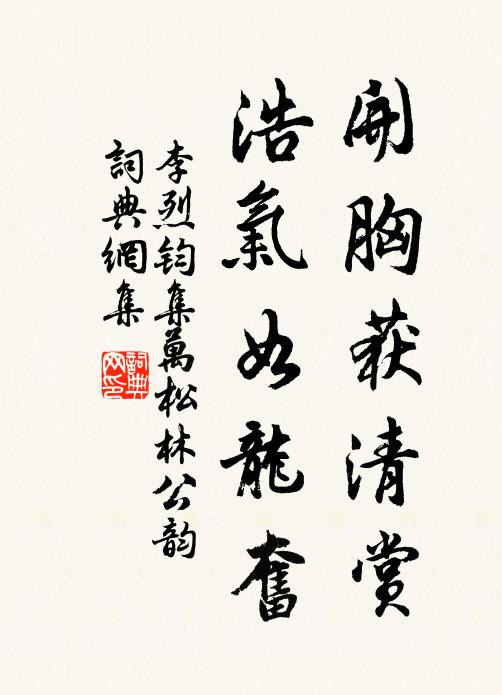 開胸获清賞
浩氣如龍奮
李烈鈞集萬松林公韵
詞典網集
詞典
网印